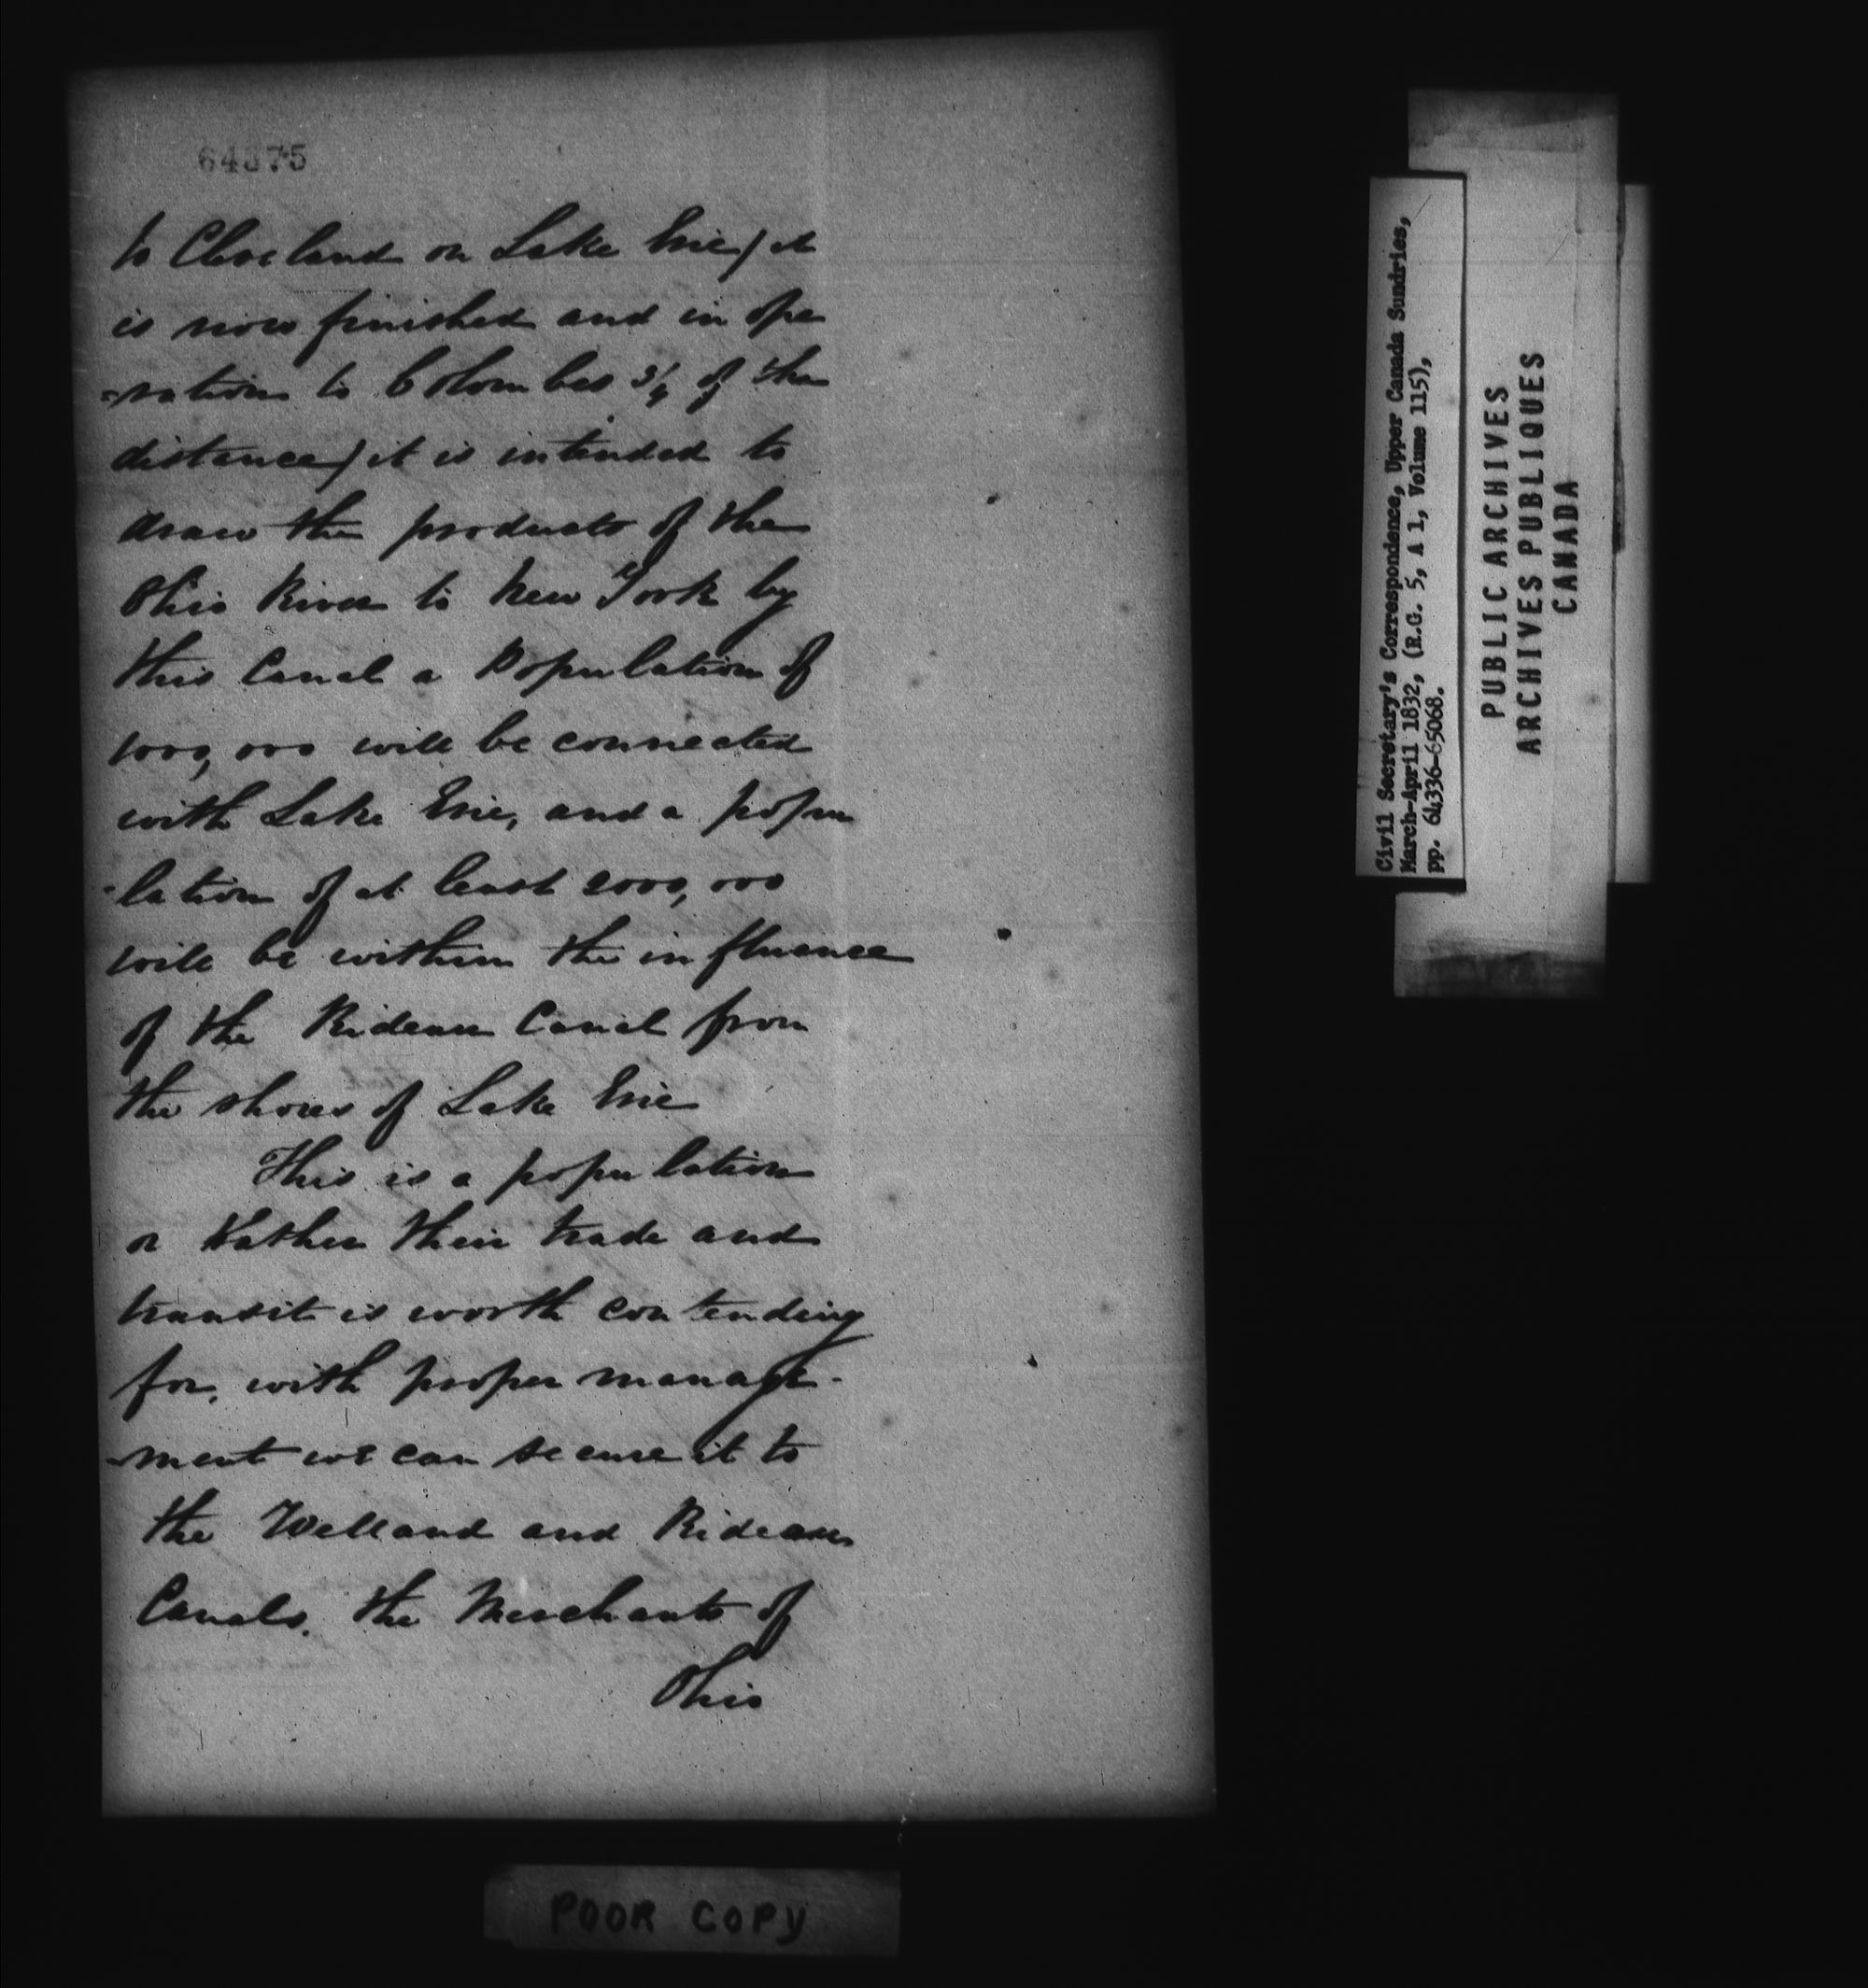 64375
to Cleveland on Lake Erie) it
is now finished and in ope
=ration to Colombus 3/4 of the
distance) it is intended to
draw the products of the
Ohio River to New York by
this Canal a Population of
1000,000 will be connected
with Lake Erie, and a popu
-lation of at least 2000,000
will be within the influence
of the Rideau Canal from
the shores of Lake Erie
This is a population
or rather their trade and
transit is worth contending
for, with proper manage-
-ment we can secure it to
the Welland and Rideau
Canals. the Merchants of
Ohio
Civil Secretary's Correspondence, Upper Canada Sundries,
March-April 1832, (R.G. 5, A 1, Volume 115),
pp. 64336-65068.
PUBLIC ARCHIVES
ARCHIVES PUBLIQUES
CANADA
POOR COPY